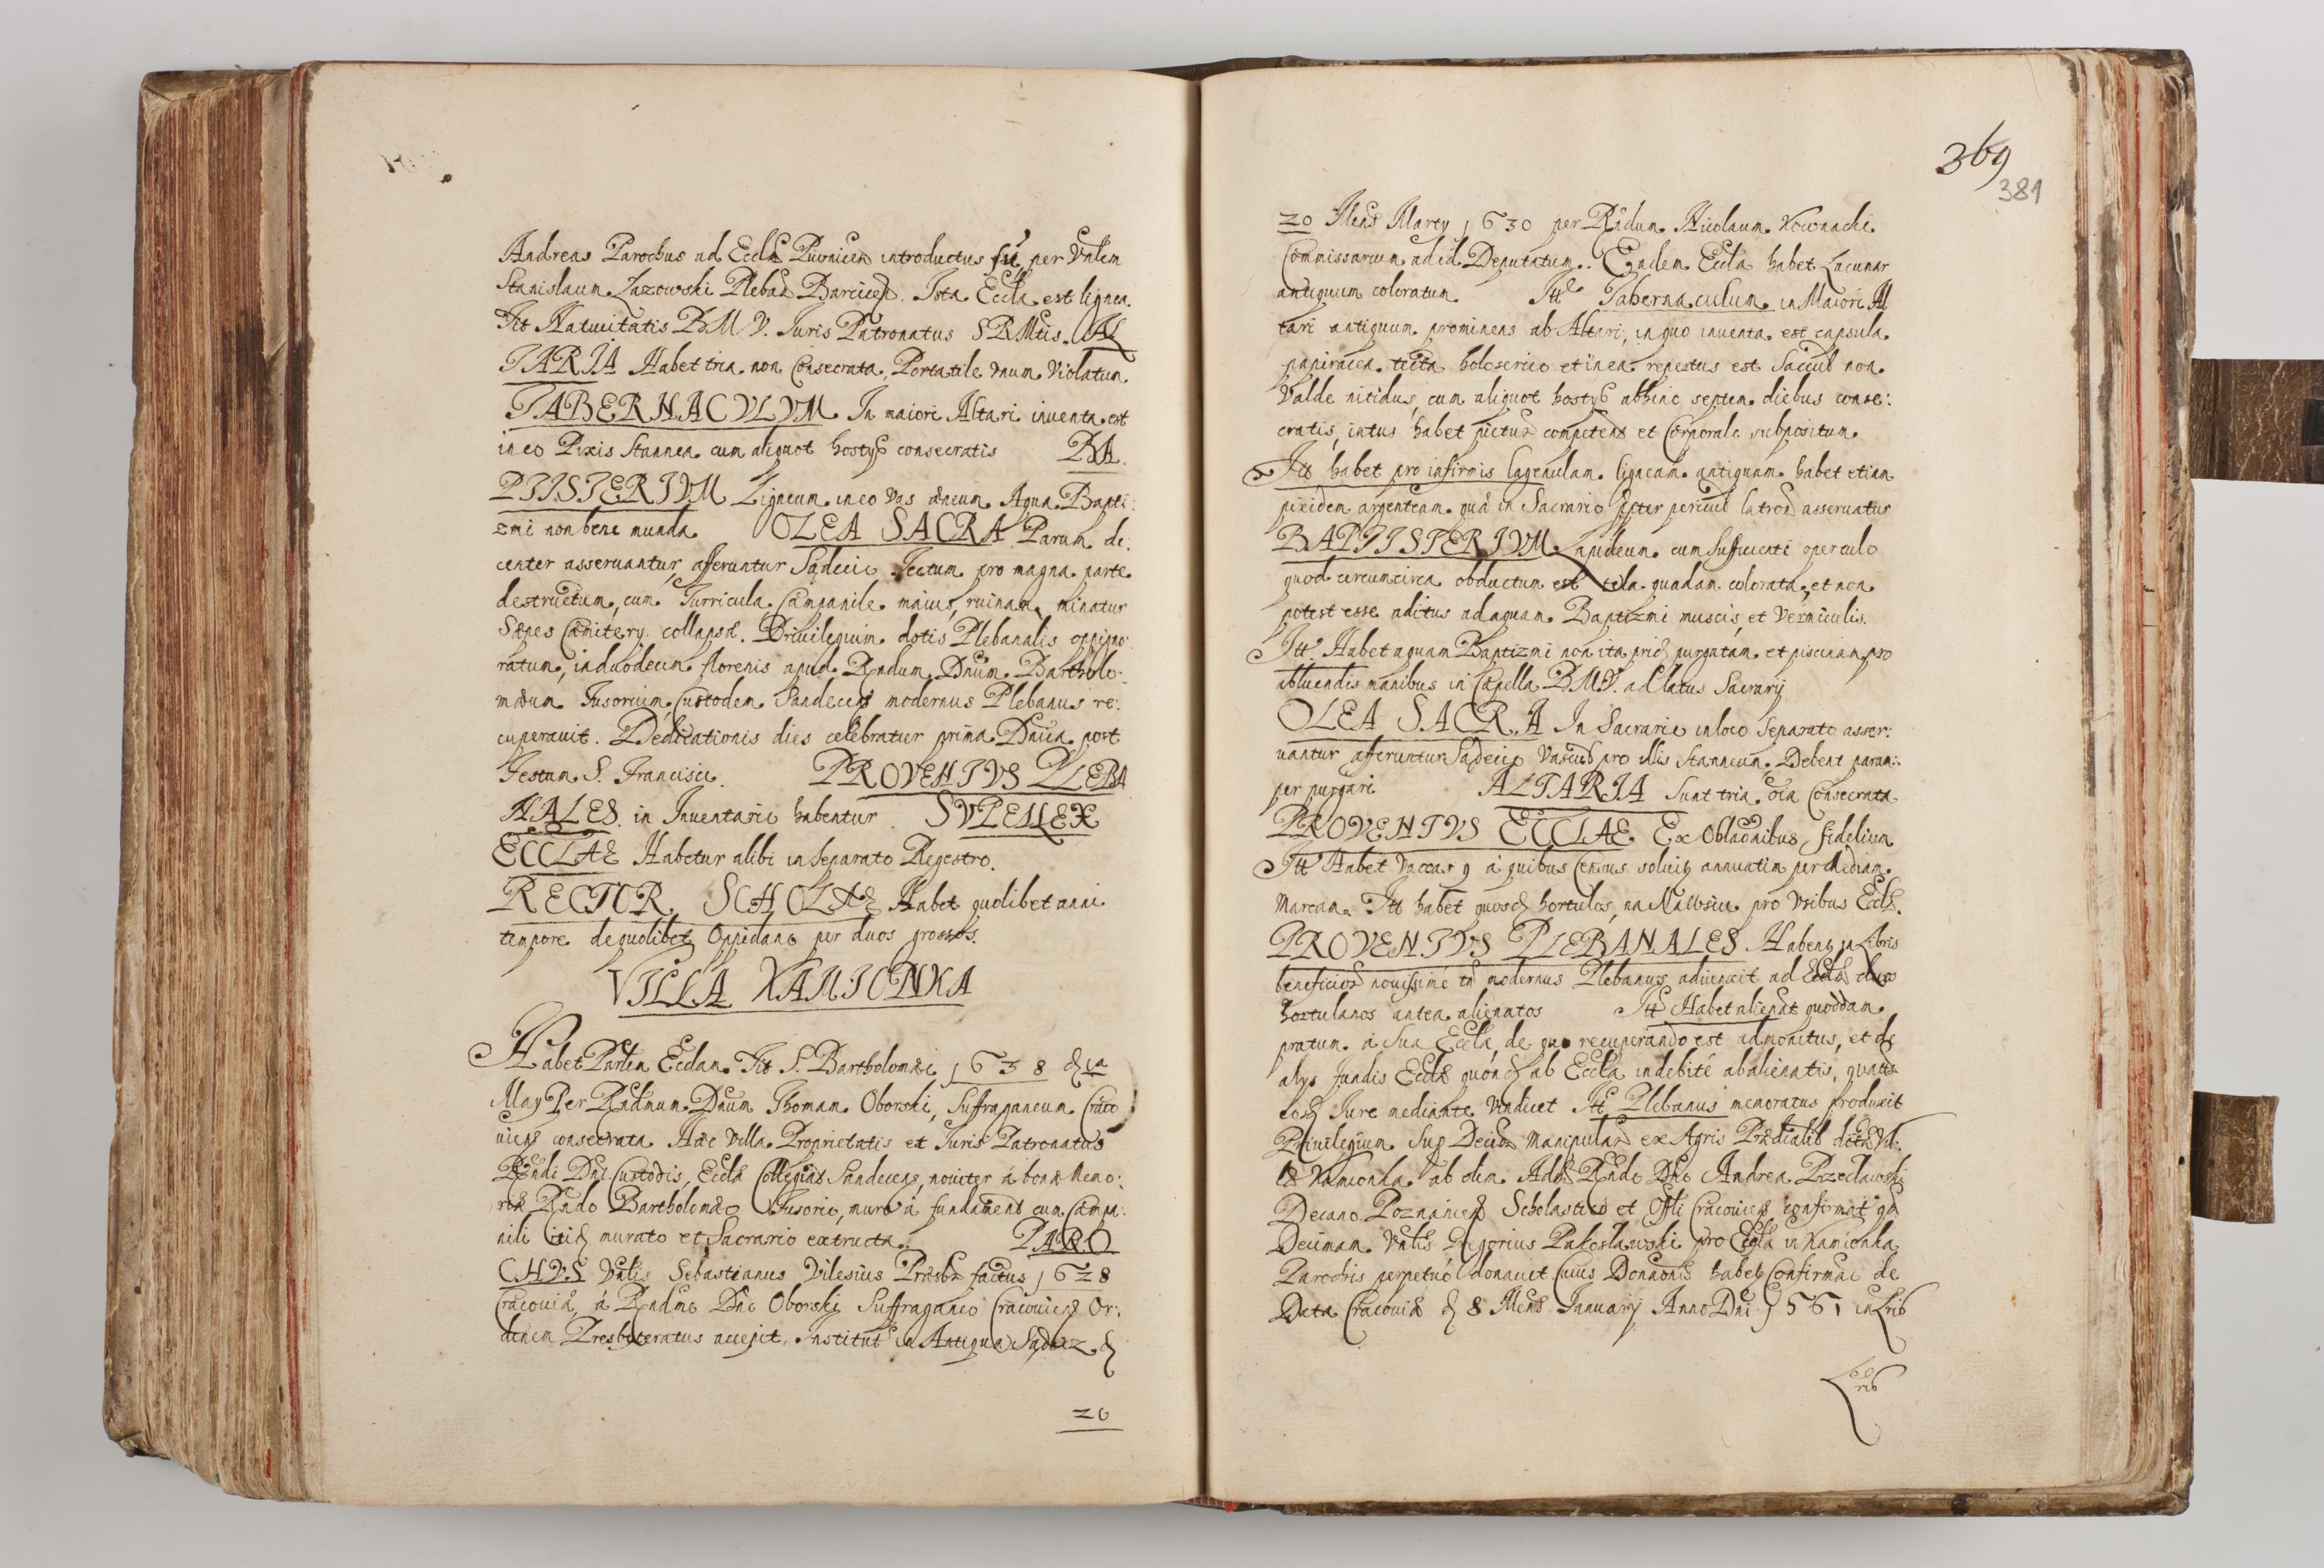 Andreas Parochus ad Eccla Piwnicen introductus per Vnlem
Stanislaum Lazowski Pleban Barcicen. Ista Eccla est lignea.
Tit Natiuitatis B M V. Iuris Patronatus S R Mtis. AL
TARIA Habet tria non Consecrata, Portatile vnum Violatum
TABERNACVLVM In maiori Altari inventa est
in eo Pixis stannea cum aliquot hostys consecratis BA
PTISTERIVM Ligneum in eo vas æneum Aqua Bapti:
zmi non bene munda OLEA SACRA Parum de:
center asseruantur, afferuntur Sądecio Tectum pro magna parte
destructum, cum Turricula Campanile maius, ruinam minatur
Sæpes Cœmitery collapsæ. Priuilegium dotis Plebanalis oppigno:
ratum, in duodecim florenis apud Rendum Dnum Bartholo:
mæum Fusorium Custodem Sandecen modernus Plebanus re:
cuperauit. Dedicationis dies celebratur prima Dnica post
Festum S. Francisci. PROVENTVS PLEBA
NALES in Inuentario habentur SVPELLEX
ECCLAE Habetur alibi in separato Regestro.
RECTOR SCHOLAE Habet quolibet anni
tempore de quolibet Oppidano per duos grossos.
VILLA KAMIONKA
Habet Parlem Ecclam Tit S. Bartholomæi 1638 1a
May Per Rndmum Dnum Thomam Oborski, Suffraganeum Craco
uiens consecrata Hæc villa Proprietatis et Iuris Patronatus
Rendi Dni Custodis, Ecclæ Collegiat Sandecens, nouiter á bonæ Memo:
riæ Rndo Bartholomæo Fusorio, muro á fundament cum Campa:
nili itid murato et Sacrario extructa. PARO
CHVS Vnlis Sebastianus Vilesius Præsbr factus 1628
Cracouiæ, á Rndmo Dno Oborski Suffraganeo Cracouien Or:
dinem Presbiteratus accepit. Institut in Antiqua Sądecz d
20
369
381
20 Mens Marty 1630 per Rndum Nicolaum Kownacki
Commissarium ad id Deputatum. Eadem Eccla habet Lacunar
antiquum coloratum Itt Tabernaculum in Maiori Al
tari antiquum prominens ab Altari, in quo inventa est capsula
papiracea tecta holoserico et in ea repertus est Saccul non
Valde nitidus, cum aliquot hostys abhinc septem diebus conse:
cratis, intus habet competens et Corporale subpositum
Itt habet pro infirmis lagenulam ligneam antiquam habet etiam
pixidem argenteam quæ in Sacrario pter pericul latron asseruatur
BAPTISTERIVM Lapideum cum sufficienti operculo
quod circumcirca obductum est tela quadam colorata, et non
potest esse aditus ad aquam Baptizmi muscis, et Vermiculis.
Itt Habet aquam Baptizmi non ita prid purgatam et piscinam pro
abluendis manibus in Capella B M V. ad latus Sacrarij
OLEA SACRA In Sacrario in loco separato asser:
uantur afferuntur Sądecio Vascul pro illis stanneum. Debent param:
per purgari ALTARIA Sunt tria oia Consecrata
PROVENTVS ECCLAE Ex Oblaonibus fidelium
Itt Habet vaccas 9 á quibus Census soluit annuatim per mediam
marcam. Itt habet quosd hortulos, na Nawsiu pro vsibus Eccl.
PROVENTVS PLEBANALES Habent in Libris
beneficior nouissimé modernus Plebanus aduenit ad Eccl duos
hortulanos antea alienatos Itt Habet alienat quoddam
pratum á sua Eccla, de quo recuperando est admonitus, et de
alys fundis Ecclæ quond ab Eccla indebité abalienatis, quatus
eosd Iure mediante vindicet Itt Plebanus memoratus produxit
Priuilegium Sup Decim Manipular ex Agris Prædialib dictæ Vil:
læ Kamionka ab olim Adm Rndo Dno Andrea Przeclawski
Decano Poznanien Scholastico et Offli Cracouien confirmat qd
Decimam Vnlis Gregorius Pakoslawski pro Eccla in Kamionka
Parochis perpetuó donauit Cuius Donaonis habet Confirmac de
Data Cracouiæ d 8 Mens Ianuarij Anno Dni 1561 in Lrib
Lrib